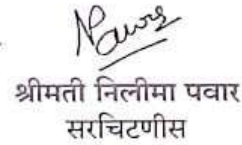 श्रीमती निलीमा पवार
सरचिटणीस